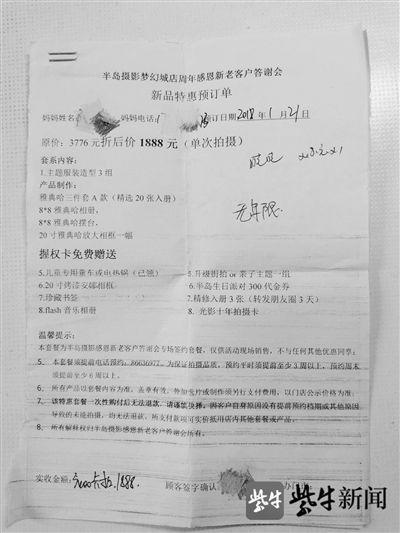 半岛摄影梦幻城店周年感恩新老客户答谢会
新品特惠预订单
妈妈姓名: 妈妈电话: 预订日期2018年1月21日
原价：3776元折后价1888元（单次拍摄）
套系内容：
1.主题服装造型3组
产品制作：
雅典哈三件套A款（精选20张入册）
8*8雅典哈相册，
8*8雅典哈摆台，
20寸雅典哈放大相框一幅
无年限.
握权卡免费赠送
5.儿童专用童车或电热锅（已领） 5.升级街拍or亲子主题一组
6.20寸烤漆交嫁相框 6.半岛生日派对300代金券
7.珍藏书签 7.精修入册3张（转发朋友圈3天）
8.flash音乐相册 8.光影十年拍摄卡
温馨提示：
本套餐为半岛摄影感恩新老客户答谢会专场签约套餐，仅供活动现场销售，不与任何其他优惠同享：
5、本套餐须提前电话预约：86636977，为保证拍摄品质，预约平时须提前至少3周以上，预约周末
须提前至少6周以上。
6、所有产品以套餐内容为准，盖章有效，外加变片或制作须另行支付费用，以门店公示价格为准；
7、该特惠套餐一次性购付后无法退款，请谨慎抉择；因客户自身原因没有提前预约档期或其他原因
导致的未能拍摄，均无法退款，所支付款项可实价抵用店内其他套餐或产品。
8、所有解释权归半岛摄影感恩新老客户答谢会所有。
实收金额: 1888. 顾客签字确认
紫牛 紫牛新闻